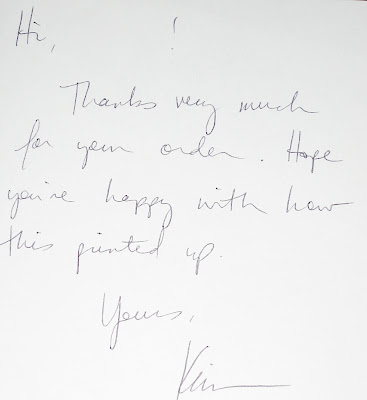 Hi, !
Thanks very much
for your order. Hope
you're happy with how
this printed up.
Yours,
Kim